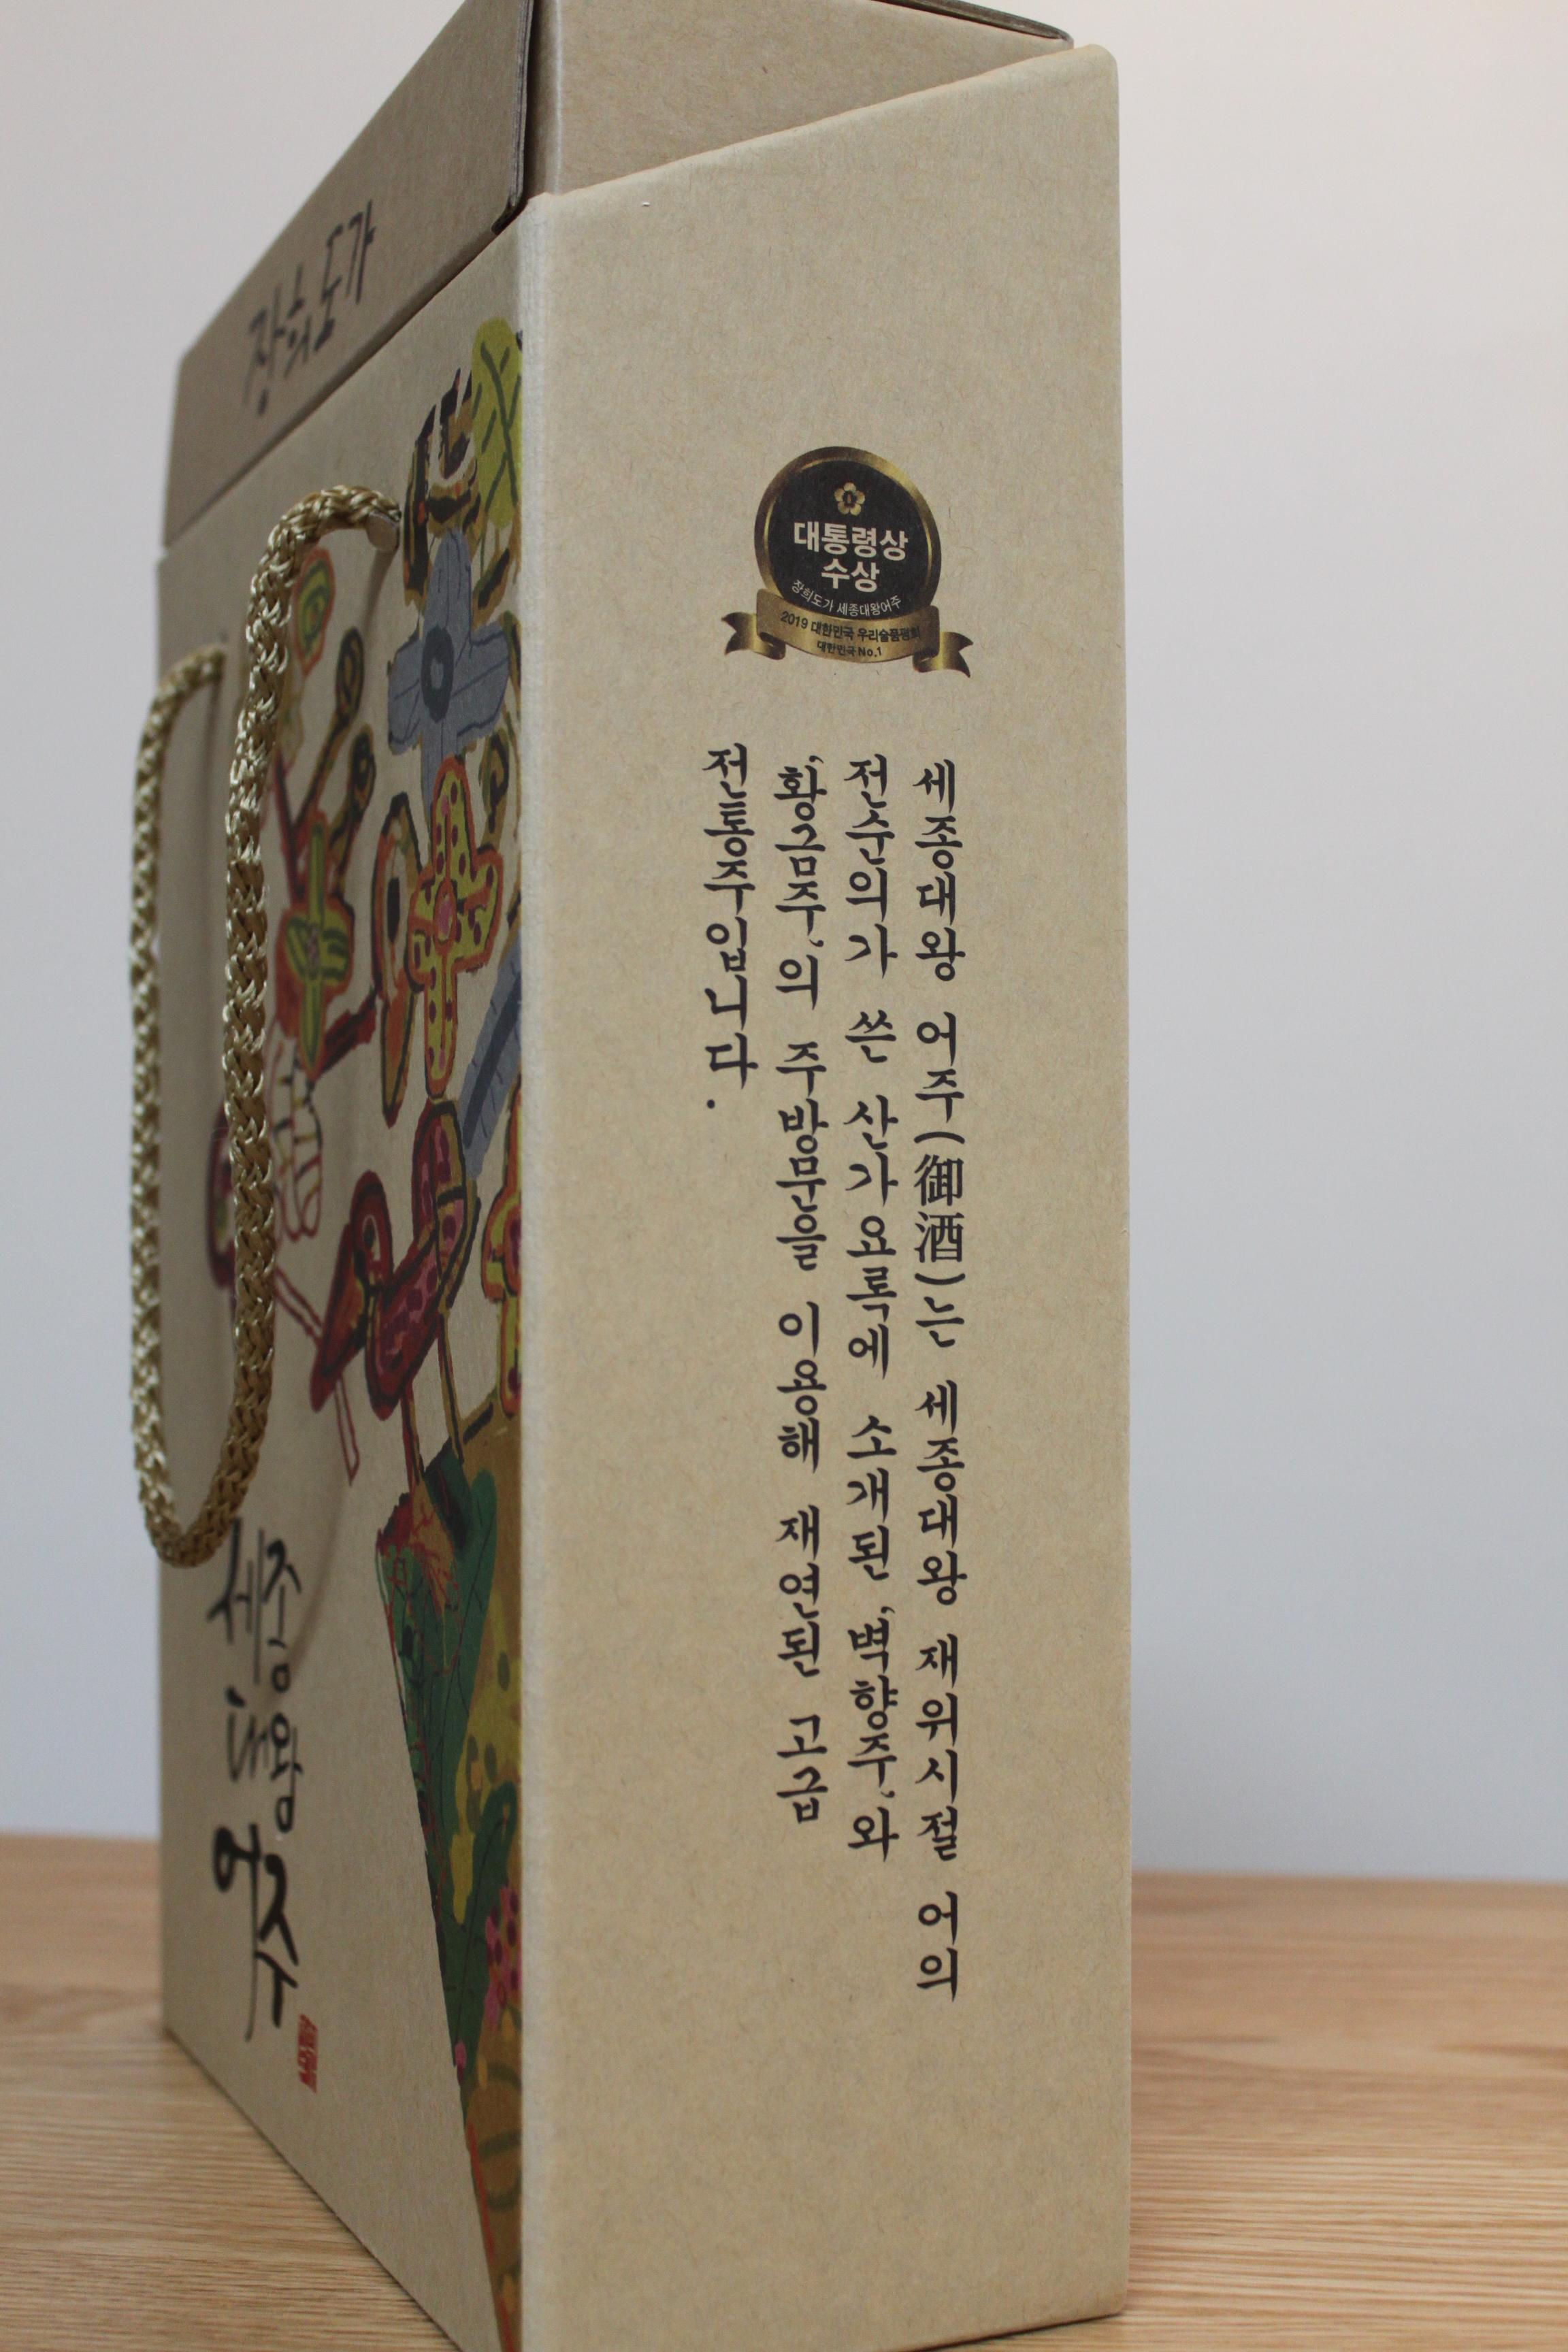 장희도가
세종
대왕
어주
대통령상
수상
장희도가 세종대왕어주
2019 대한민국 우리술품평회
대한민국 No.1
세종대왕 어주(御酒)는 세종대왕 재위시절 어의
전순의가 쓴 산가요록에 소개된 '벽향주'와
'황금주'의 주방문을 이용해 재연된 고급
전통주입니다.